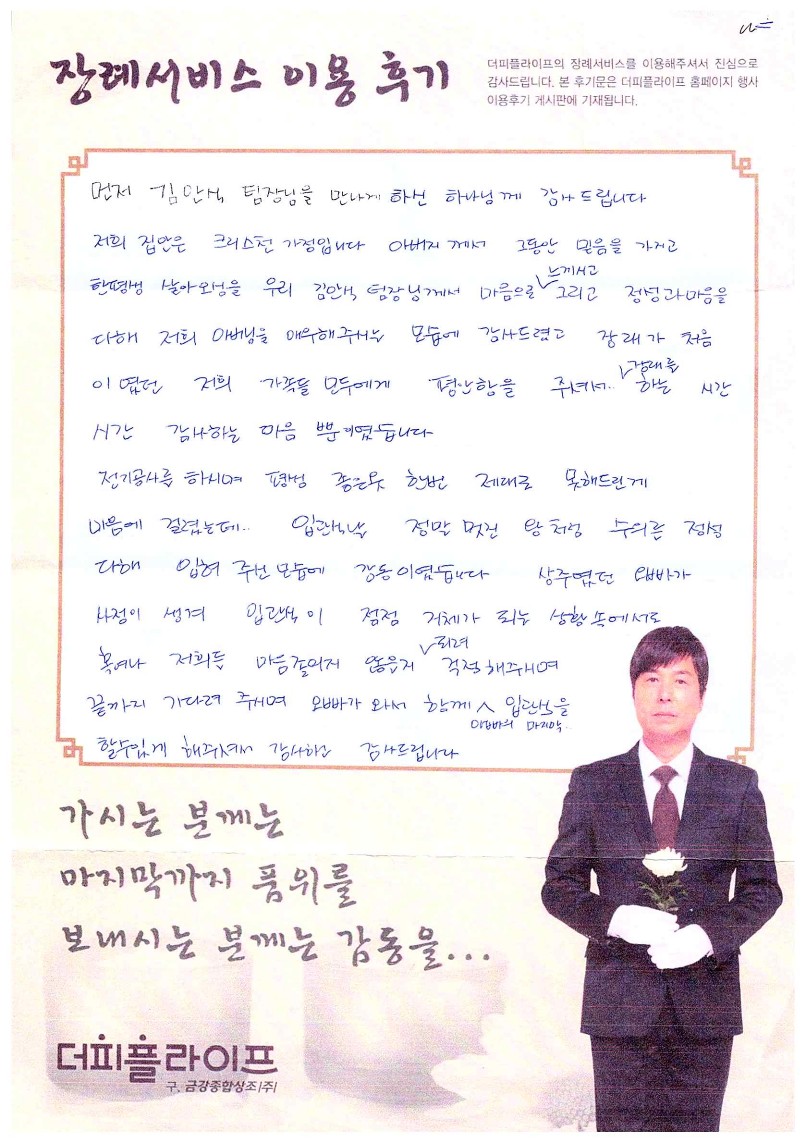 장례서비스 이용 후기
더피플라이프의 장례서비스를 이용해주셔서 진심으로
감사드립니다. 본 후기문은 더피플라이프 홈페이지 행사
이용후기 게시판에 기재됩니다.
먼저 김안식 팀장님을 만나게 하신 하나님께 감사드립니다
저희 집안은 크리스천 가정입니다 아버지께서 그동안 믿음을 가지고
한평생 살아오심을 우리 김안식 팀장님께서 마음으로 느끼시고 그리고 정성과마음을
다해 저희 아버님을 예우해주시는 모습에 감사드렸고 장래가 처음
이였던 저희 가족들 모두에게 평안함을 주셔서.. 장래를 하는 시간
시간 감사하는 마음 뿐이였습니다
전기공사를 하시며 평생 좋은옷 한번 제대로 못해드린게
마음에 걸렸는데.. 입관식날 정말 멋진 왕처럼 수의를 정성
다해 입혀 주신 모습에 감동이였습니다 상주였던 오빠가
사정이 생겨 입관식이 점점 지체가 되는 상황속에서도
혹여나 저희들 마음졸이지 않을지 되려 걱정해주시며
끝까지 기다려 주시며 오빠가 와서 함께 아빠의 마지막.. 입관식을
할수있게 해주셔서 감사하고 감사드립니다
가시는 분께는
마지막까지 품위를
보내시는 분께는 감동을...
더피플라이프
구. 금강종합상조(주)